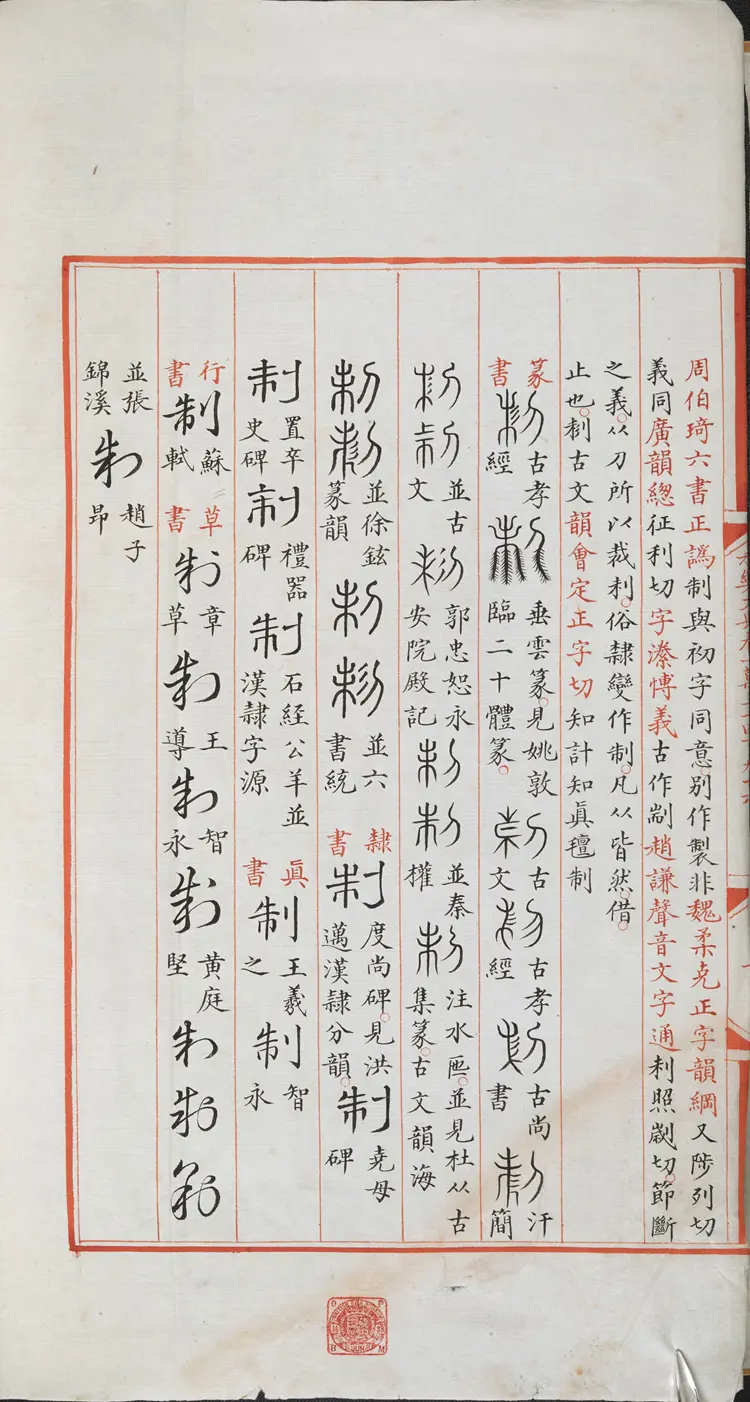 周伯琦六書正譌制與初字同意別作製非魏柔克正字韻綱又陟列切
義同廣韻總征利切字潫博義古作剬趙謙聲音文字通利照劌切節斷
之義从刀所以裁利俗隸變作制凡从皆然借
止也𠛐古文韻會定正字切知計知眞氊制
篆書 制 古孝經 制 垂雲篆見姚敦臨二十體篆 制 古文 制 古孝經 制 古尚書 制 汗簡
制制 並古文 制 郭忠恕永安院殿記 制制 並秦權 制 注水匜並見杜从古集篆古文韻海
制制 並徐鉉篆韻 制制 並六書統 隸書 制 度尚碑見洪邁漢隸分韻 制 堯母碑
制 置卒史碑 制 禮器碑 制 石經公羊並漢隸字源 眞書 制 王羲之 制 智永
行書 制 蘇軾 草書 制 章草 制 王導 制 智永 制 黃庭堅 制制制
並張錦溪 制 趙子昂